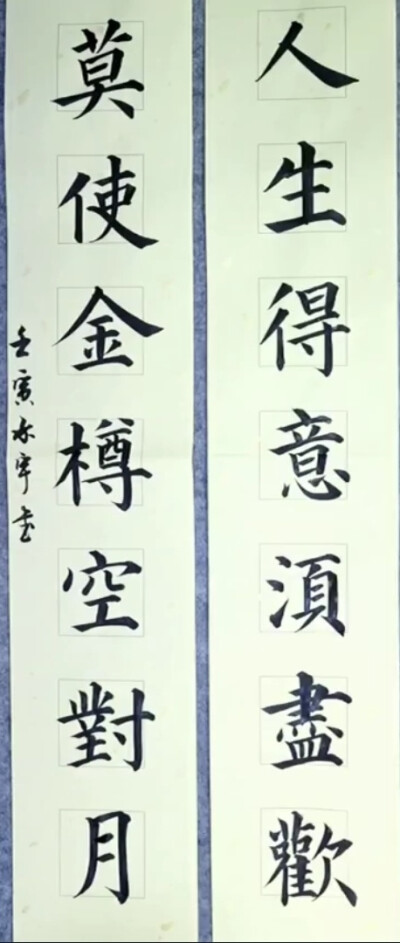 人生得意須盡歡
莫使金樽空對月
壬寅永宇書